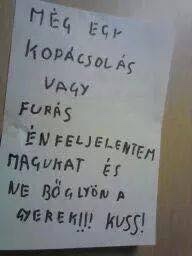 MÉG EGY
KOPÁCSOLÁS
VAGY
FURÁS
ÉNFELJELENTEM
MAGUKAT ÉS
NE BŐGLYÖN A
GYEREK!!! KUSS!